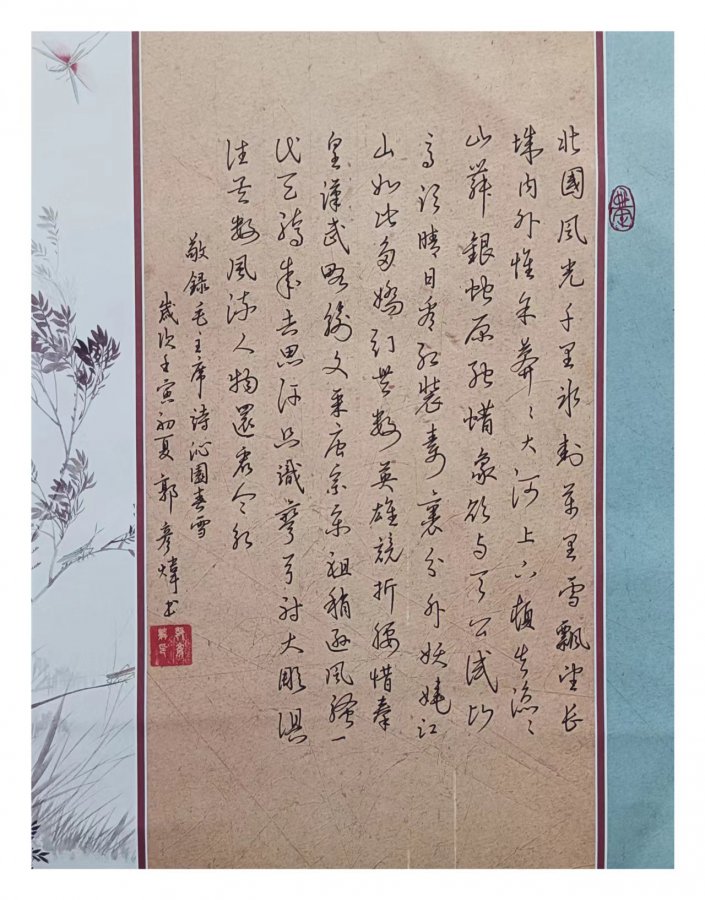 北國風光千里冰封萬里雪飄望長
城內外惟余莽〻大河上下頓失滔〻
山舞銀蛇原馳蜡象欲与天公试比
高须晴日看红裝素裹分外妖娆江
山如此多嬌引無数英雄競折腰惜秦
皇漢武略输文采唐宗宋祖稍逊風骚一
代天骄成吉思汗只識彎弓射大雕俱
往矣数風流人物還看今朝
敬録毛主席詩沁園春雪
歲次壬寅初夏郭彦煒书